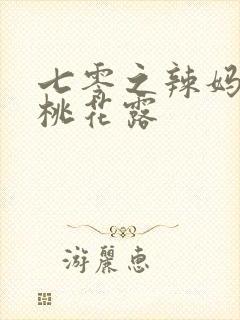 七零之辣妈
桃花露
游丽惠